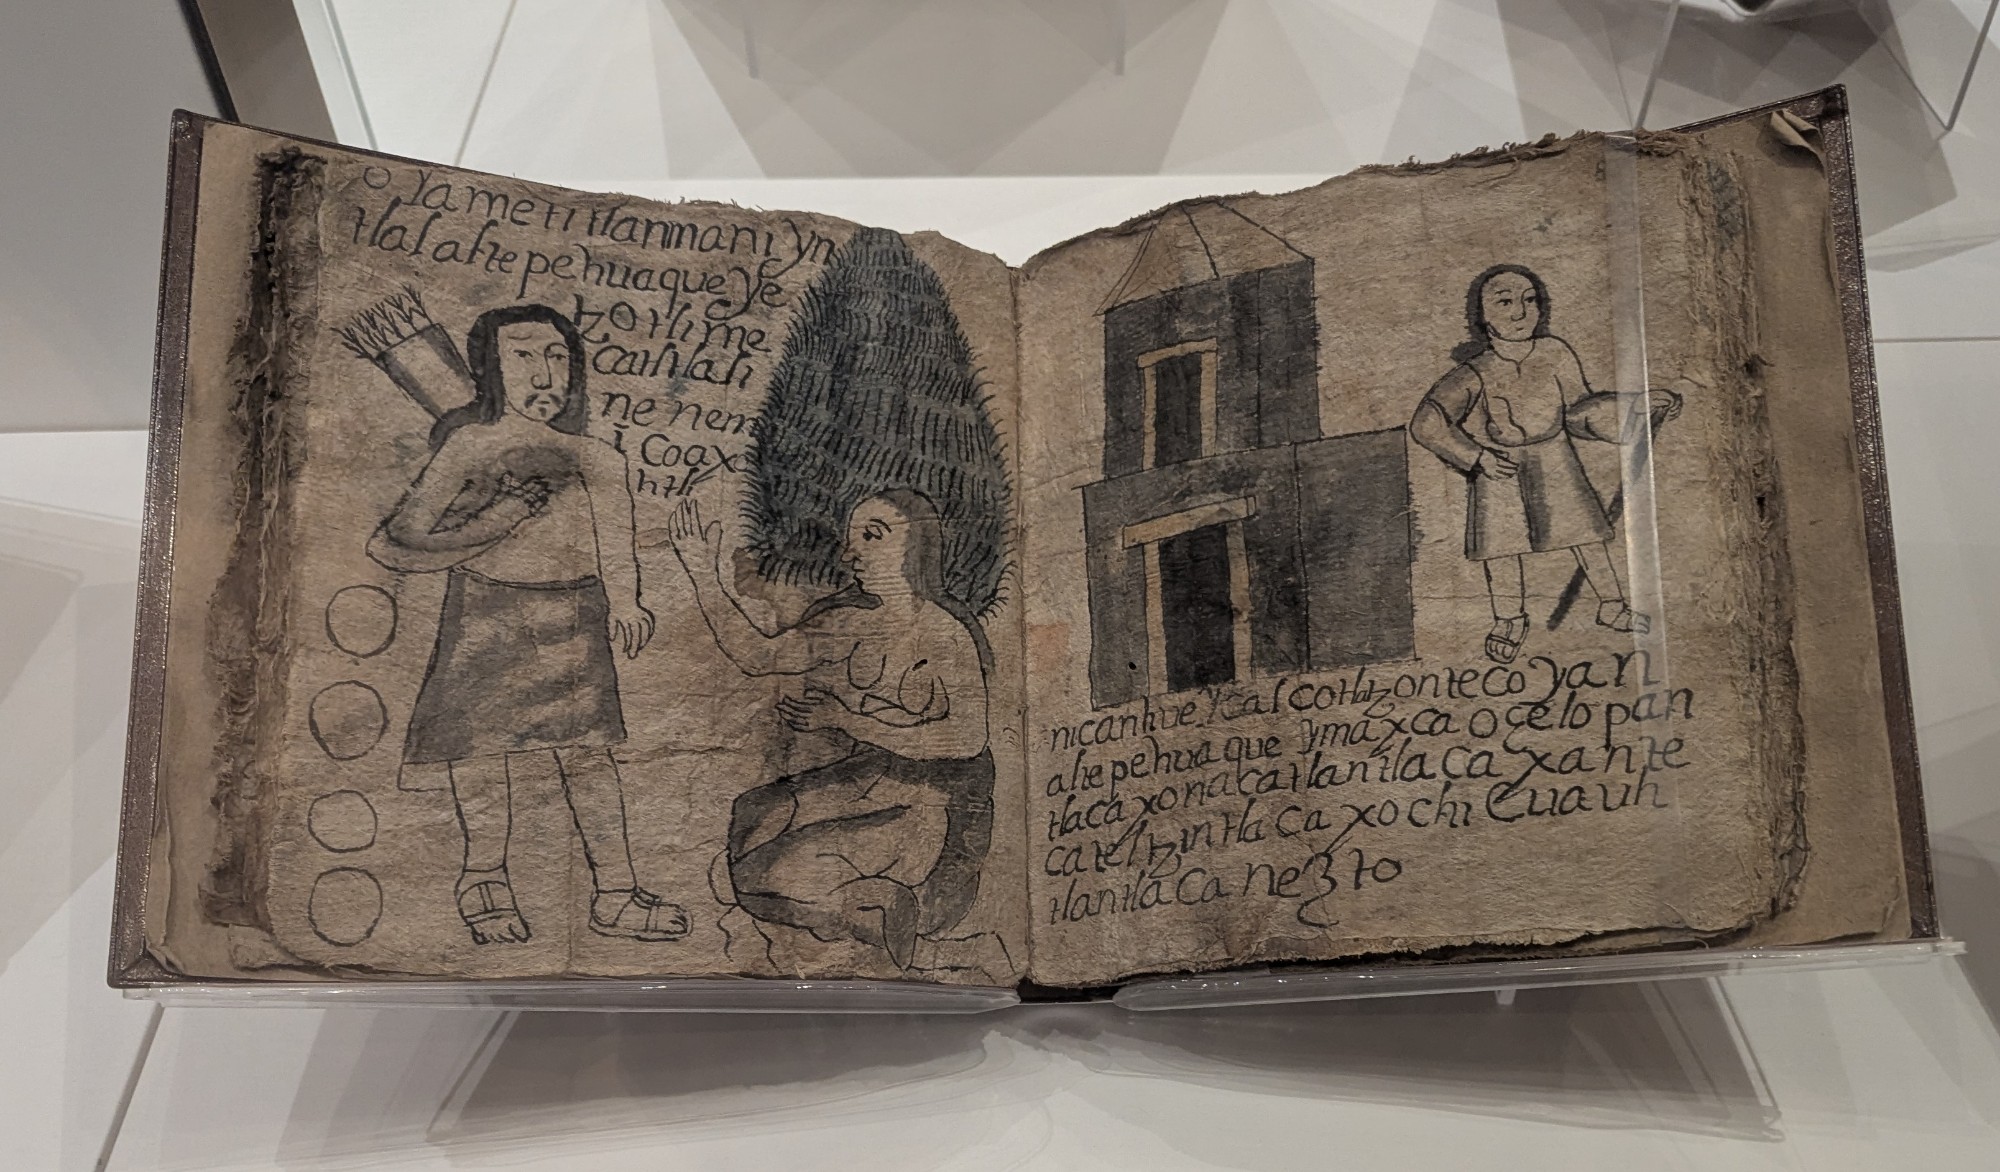 o yametitlanmani yn
tlal altepehuaque ye
tzotli me
catltlali
ne nem
i coaxo
htli
nicanhueycalcotlatzontecoyan
altepehuaque ymaxca oçelopan
tlacaxonacatlantlaca xante
cateltzintlaca xochicuauh
tlantlaca nezto